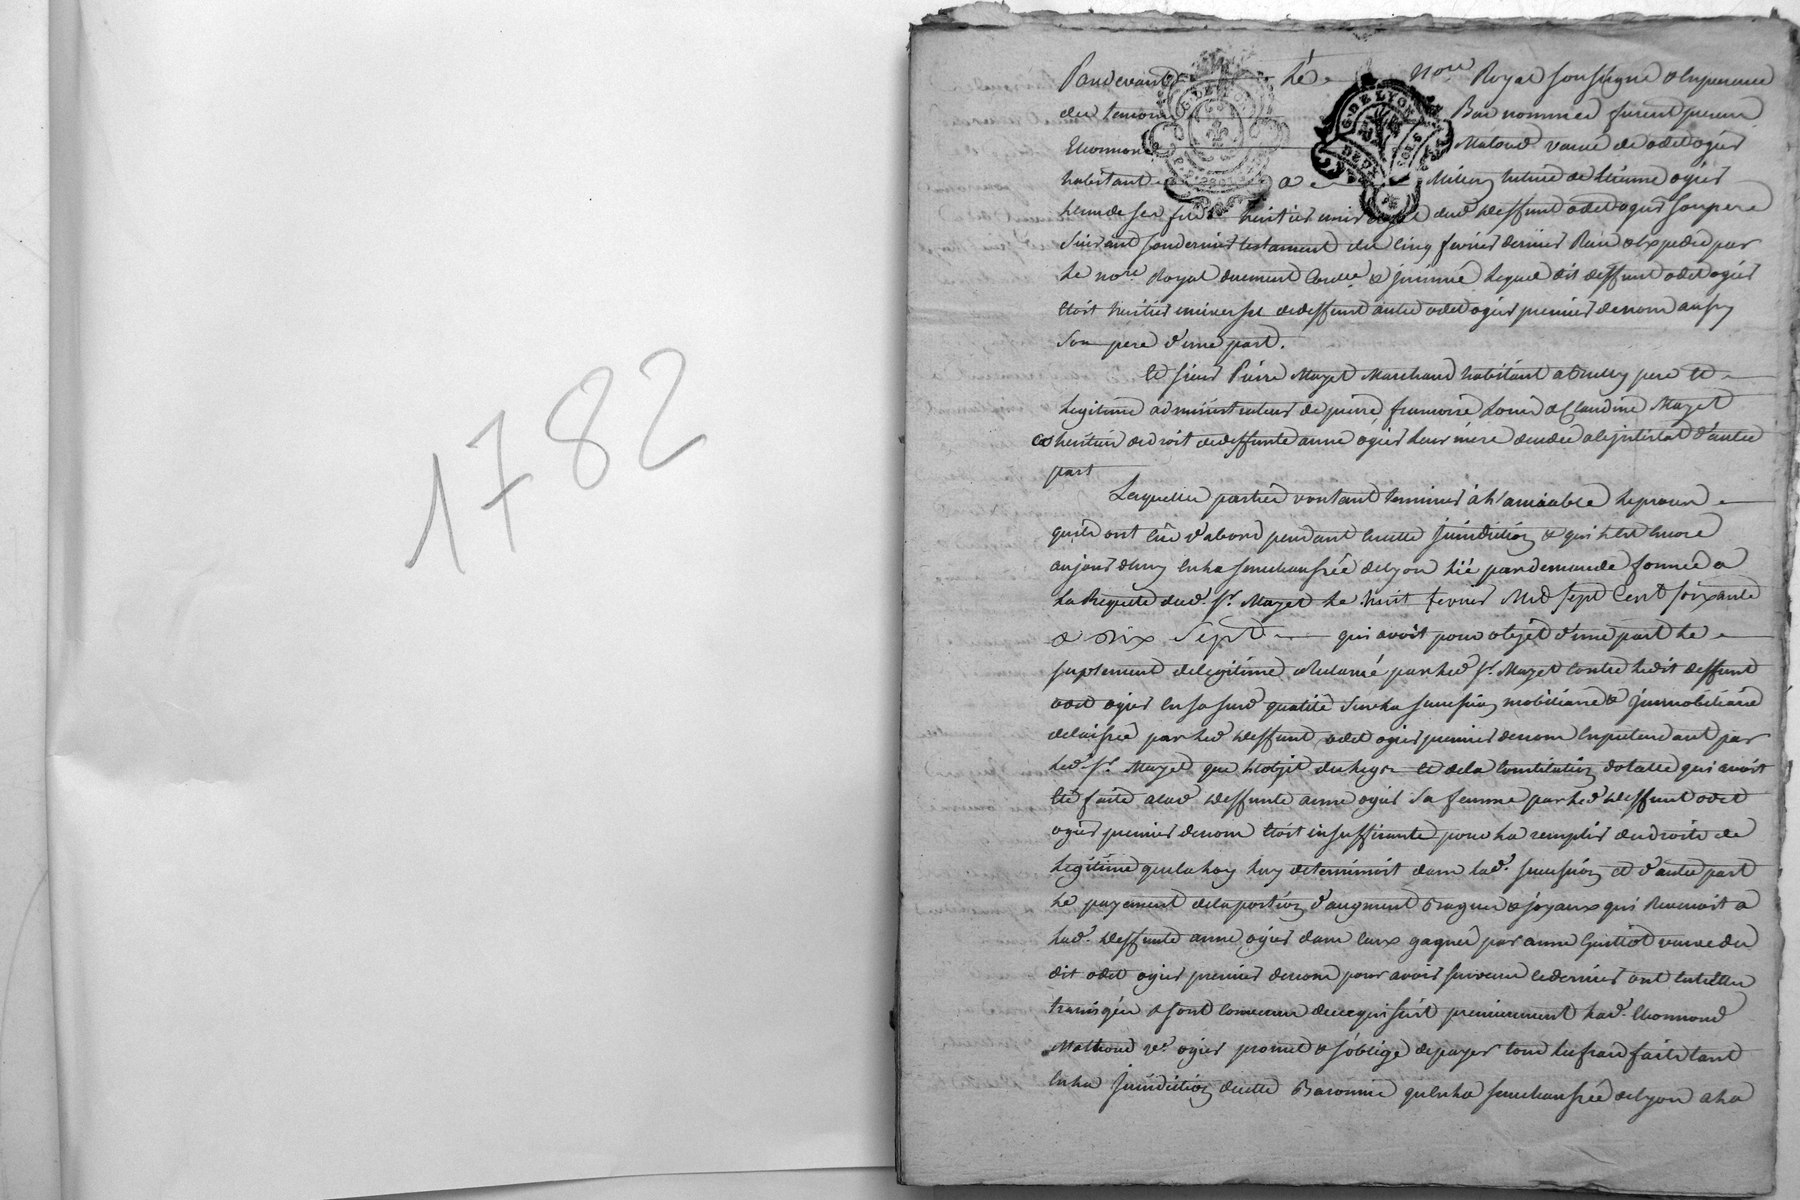 1782
G. DE LYON
G. DE LYON
DEUX SOLS
Pardevant le no.re Royal soussigné & en presence
des temoins Bas nommes furent presents
Matoud veuve de odet ogier
habitante a tutrice de Etienne ogier
heritier universel dud deffunt odet ogier son pere
suivant son dernier testament du cinq fevrier dernier Reçu & expedié par
le no.re Royal duement lequel dit deffunt odet ogier
etoit heritier universel de deffunt autre odet ogier premier de nom aussy
son pere d'une part.
Et sieur Pierre Mazet Marchand habitant a pere et
legitime administrateur de pierre françoise Louis & Claudine Mazet
coheritiers de droit de deffunte anne ogier leur mere decedée abjntestat d'autre
part
Lesquelles parties voulant terminer à l'amiable le procès
qu'ils ont eu d'abord pendant en cette Jurisdiction & qui l'est encore
aujourdhuy en la senechaussée de Lyon lié par demande formée a
la Requete dud. Sr. Mazet le huit fevrier Mil sept Cent soixante
& Dix Sept qui avoit pour objet d'une part le
suplement de legitime reclamé par led Sr. Mazet contre ledit deffunt
odet ogier en sa susd qualité sur la succession mobiliaire & jmmobiliaire
delaissée par led deffunt odet ogier premier de nom en pretendant par
led Sr. Mazet que l'objet du legs et de la Constitution dotalle qui avoit
eté faite a lad deffunte anne ogier sa femme par led deffunt odet
ogier premier de nom etoit insuffisante pour la remplir des droits de
legitime que la loy luy determinoit dans lad. succession et d'autre part
le payement de la portion d'augment Bagues & joyaux qui Revenoit a
lad. deffunte anne ogier dans ceux gagnés par anne Guillot veuve du
dit odet ogier premier de nom pour avoir survecu ce dernier ont entr'elles
transigées & sont convenues de ce qui suit premierement lad.
Mathoud ve. ogier promet & s'oblige de payer tous les frais faits tant
en la Jurisdiction de cette Baronnie qu'en la senechaussée de Lyon a la